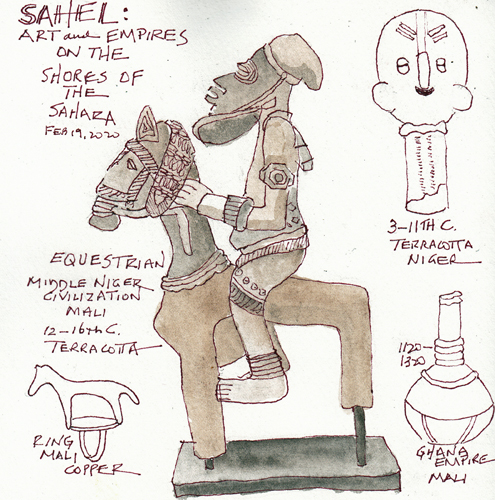 SAHEL:
ART and EMPIRES
ON THE
SHORES OF
THE
SAHARA
FEB 19, 2020
EQUESTRIAN
MIDDLE NIGER
CIVILIZATION
MALI
12-16th C.
TERRACOTTA
RING
MALI
COPPER
3-11TH C.
TERRACOTTA
NIGER
1120-
1320
GHANA
EMPIRE
MALI